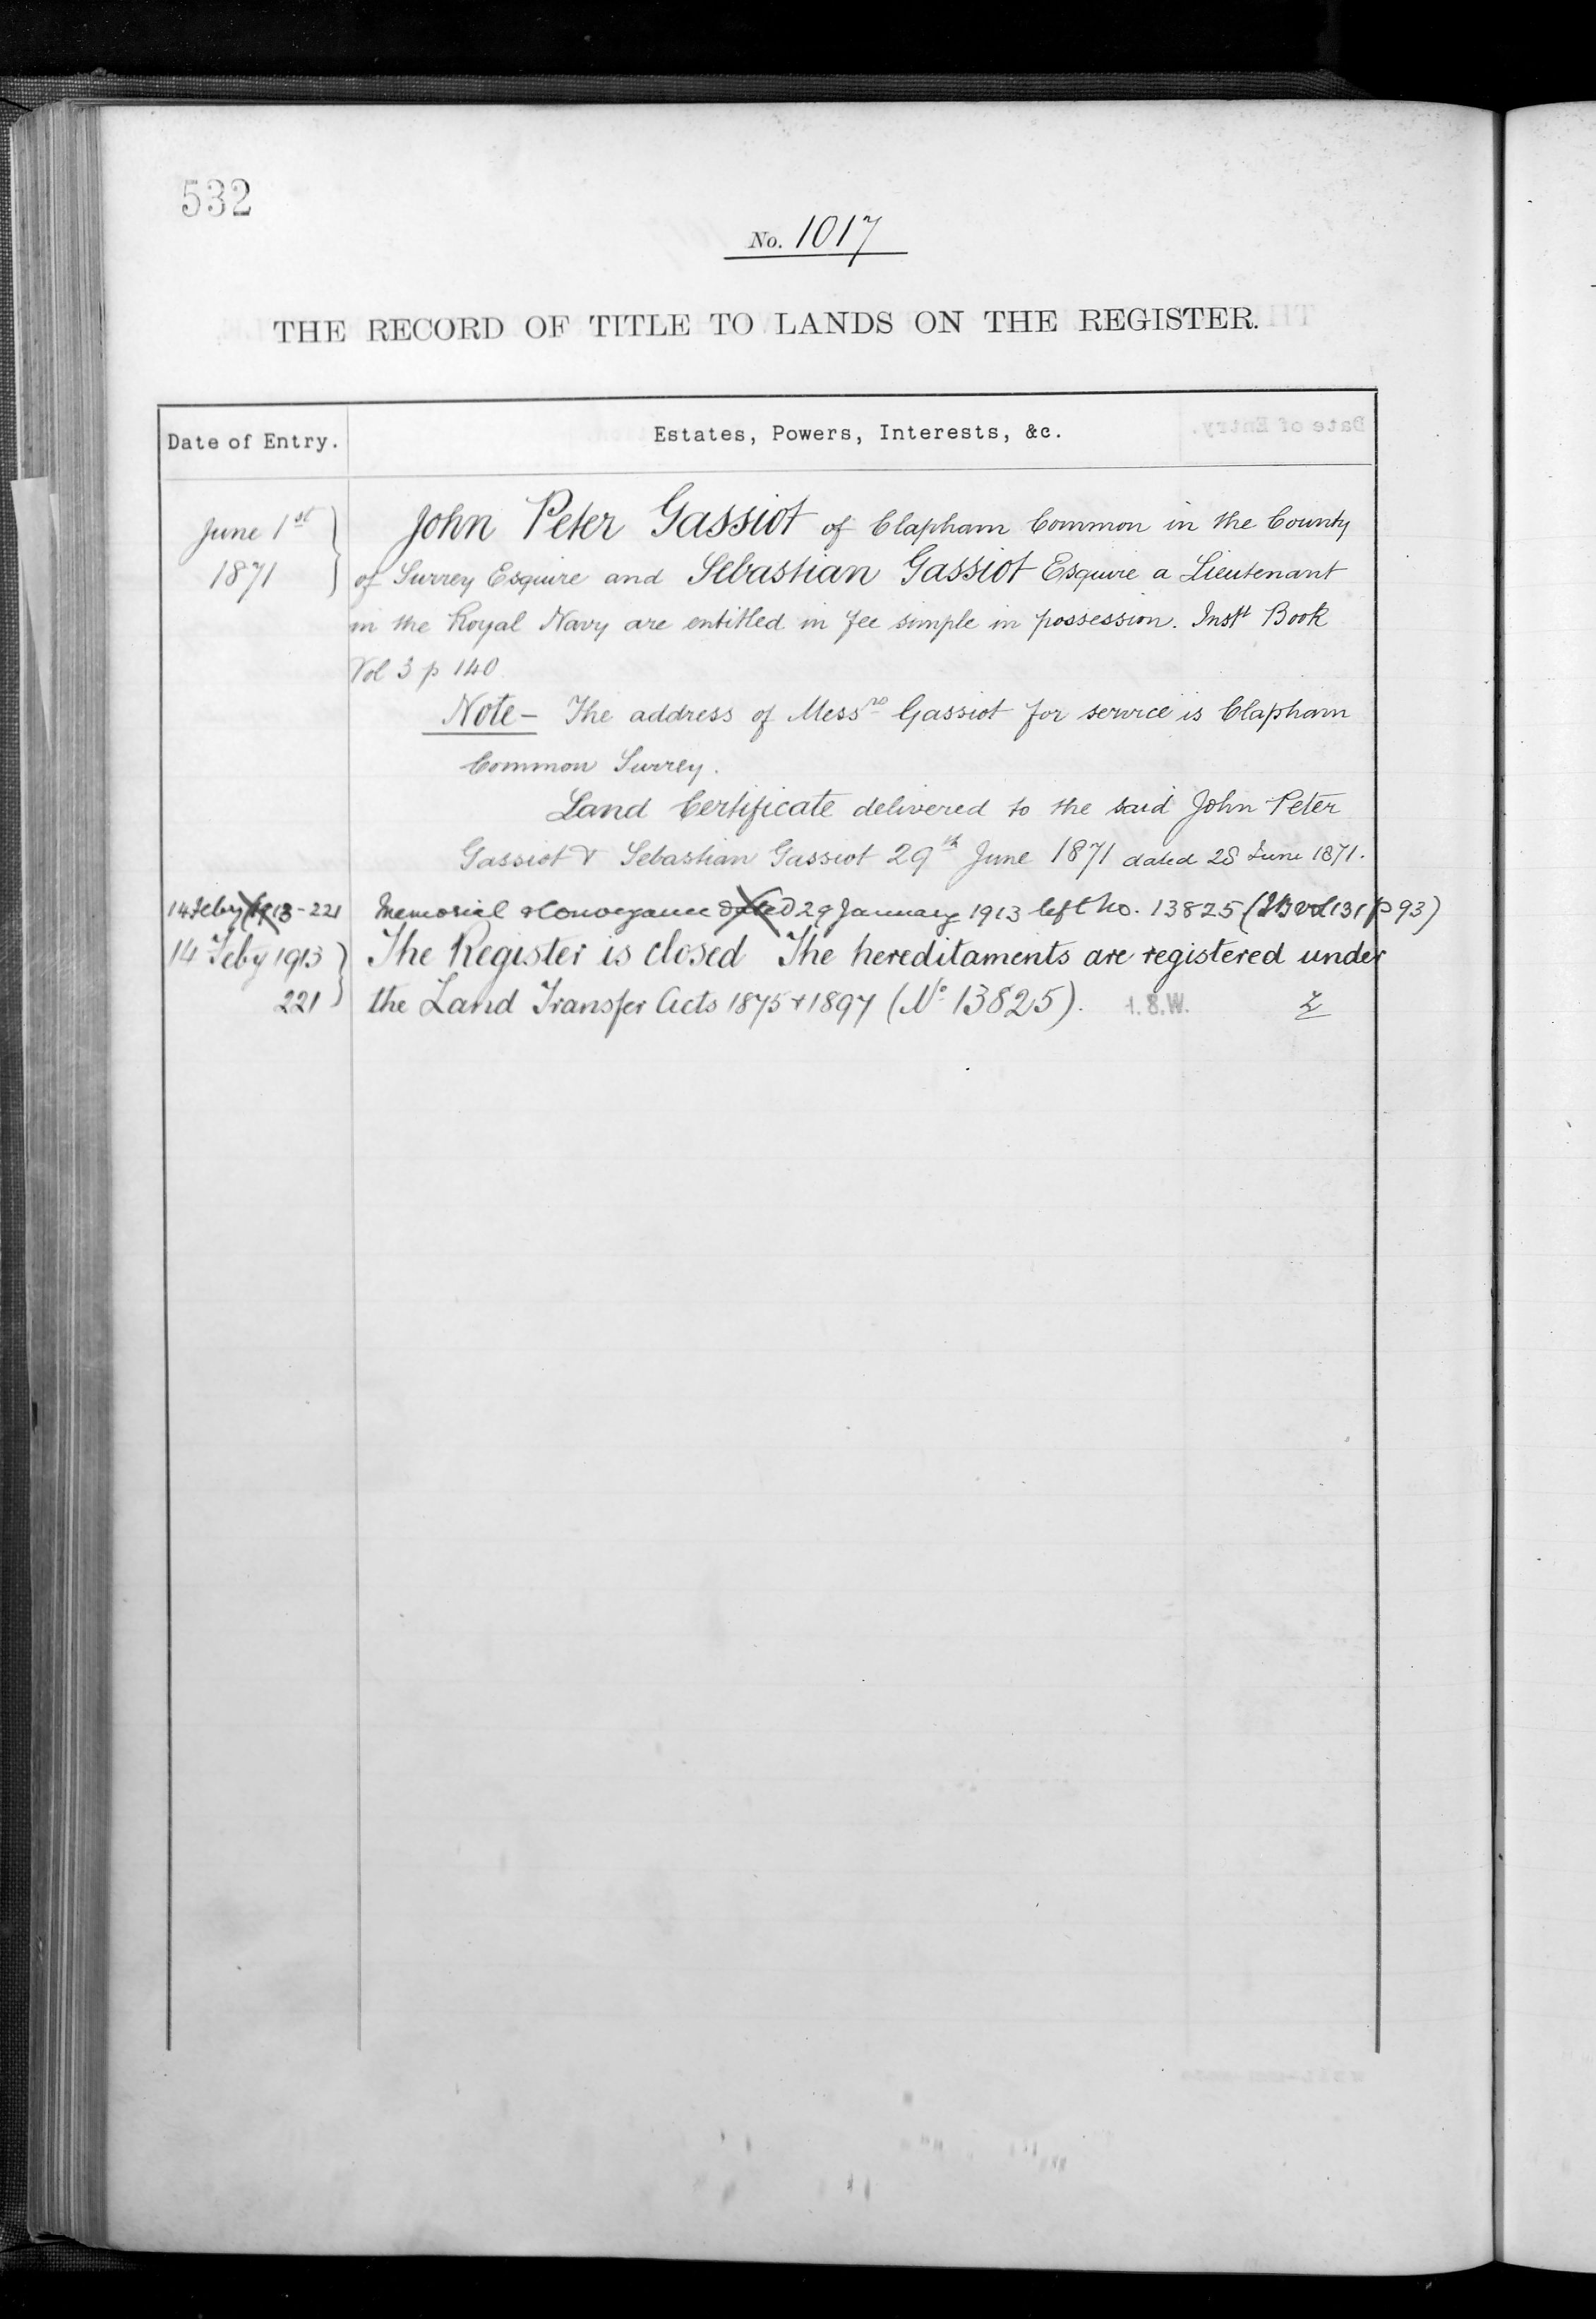 532
No. 1017
THE RECORD OF TITLE TO LANDS ON THE REGISTER.
Date of Entry.
Estates, Powers, Interests, &c.
June 1st
1871
John Peter Gassiot of Clapham Common in the County
of Surrey Esquire and Sebastian Gassiot Esquire a Lieutenant
in the Royal Navy are entitled in fee simple in possession. Inst Book
Vol 3 p 140
Note – The address of Messrs Gassiot for service is Clapham
Common Surrey.
Land Certificate delivered to the said John Peter
Gassiot & Sebastian Gassiot 29th June 1871 dated 28 June 1871.
14 Feby 1913 - 221 Memorial & Conveyance dated 29 January 1913 left No. 13825 (vol 131 p 93)
14 Feby 1913
221
The Register is closed The hereditaments are registered under
the Land Transfer Acts 1875 & 1897 (No 13825).